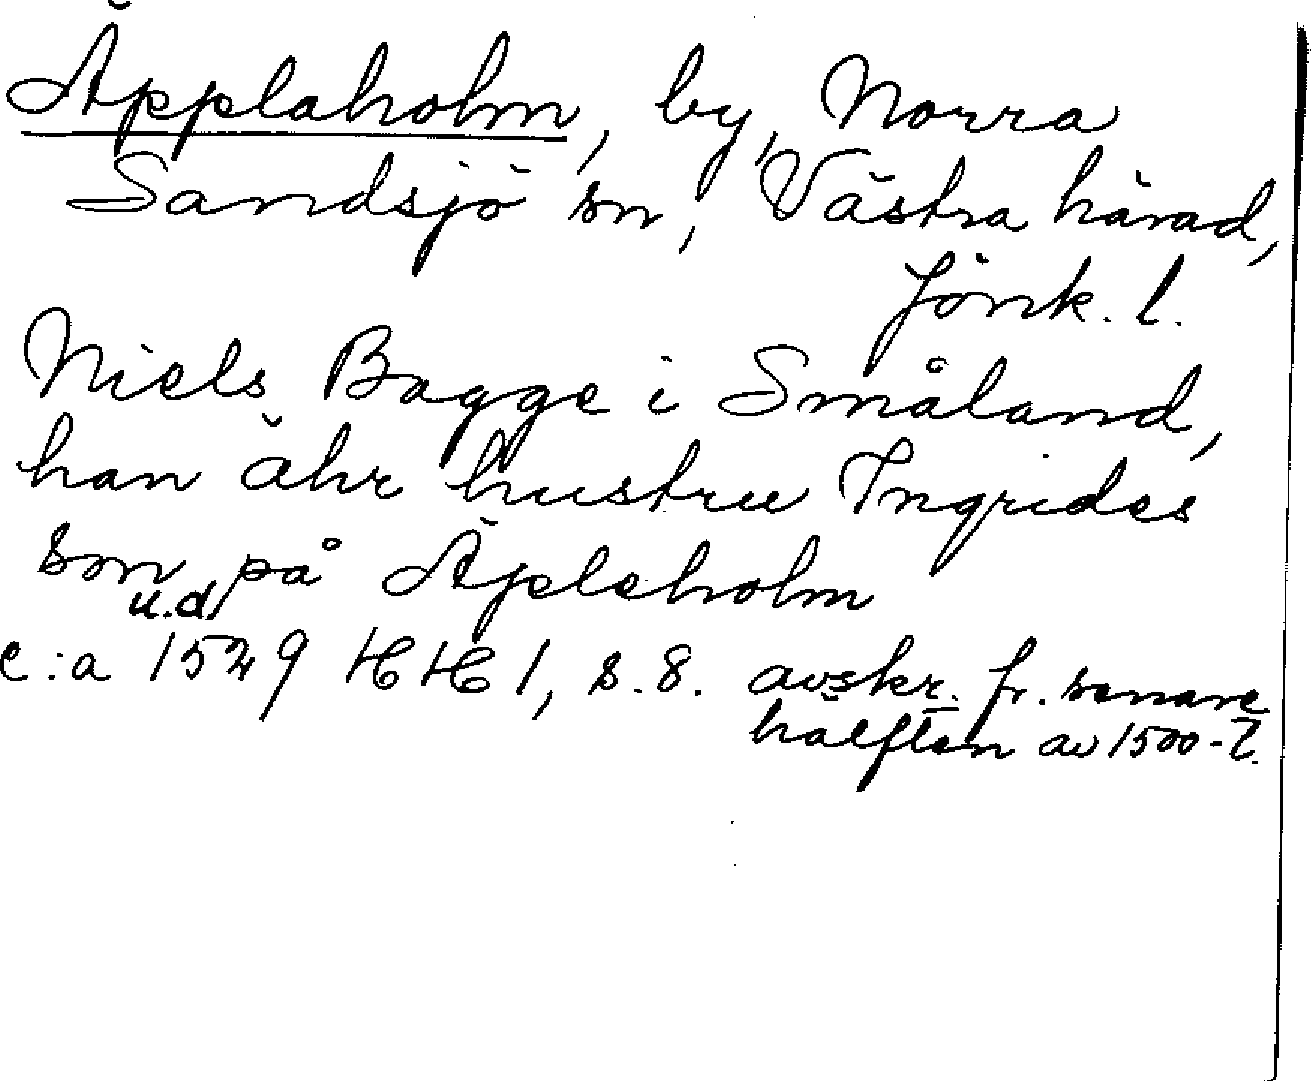 Äpplaholm, by, Norra
Sandsjö sn, Västra härad,
Jönk. l.
Niels Bagge i Småland,
han ähr hustru Ingrides
son på Äpleholm
u.d.
c:a 1529 HH 1, s. 8. avskr. fr. senare
hälften av 1500-t.